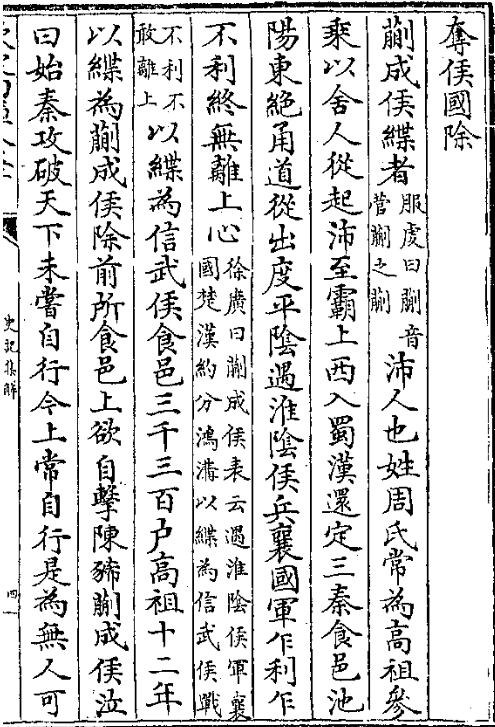 奪侯國除
蒯成侯緤者服虔曰蒯音菅蒯之蒯沛人也姓周氏常為高祖參
乘以舍人從起沛至霸上西入蜀漢還定三秦食邑池
陽東絕甬道從出度平陰遇淮陰侯兵襄國軍乍利乍
不利終無離上心徐廣曰蒯成侯表云遇淮陰侯軍襄國楚漢約分鴻溝以緤為信武侯戰
不利不敢離上以緤為信武侯食邑三千三百户高祖十二年
以緤為蒯成侯除前所食邑上欲自擊陳豨蒯成侯泣
曰始秦攻破天下未嘗自行今上常自行是為無人可
史記集解